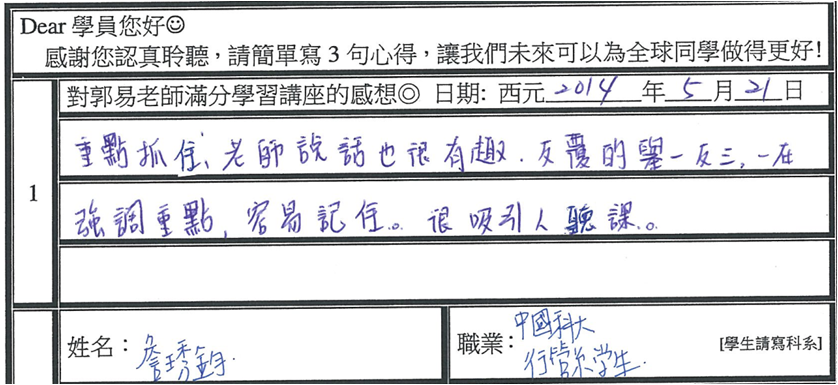 Dear 學員您好☺
感謝您認真聆聽，請簡單寫 3 句心得，讓我們未來可以為全球同學做得更好!
對郭易老師滿分學習講座的感想◎ 日期: 西元 2014 年 5 月 21 日
1
重點抓住、老師說話也很有趣．反覆的舉一反三，一在
強調重點，容易記住。很吸引人聽課。
姓名：詹琇
職業：中國科大
行管系學生．
[學生請寫科系]